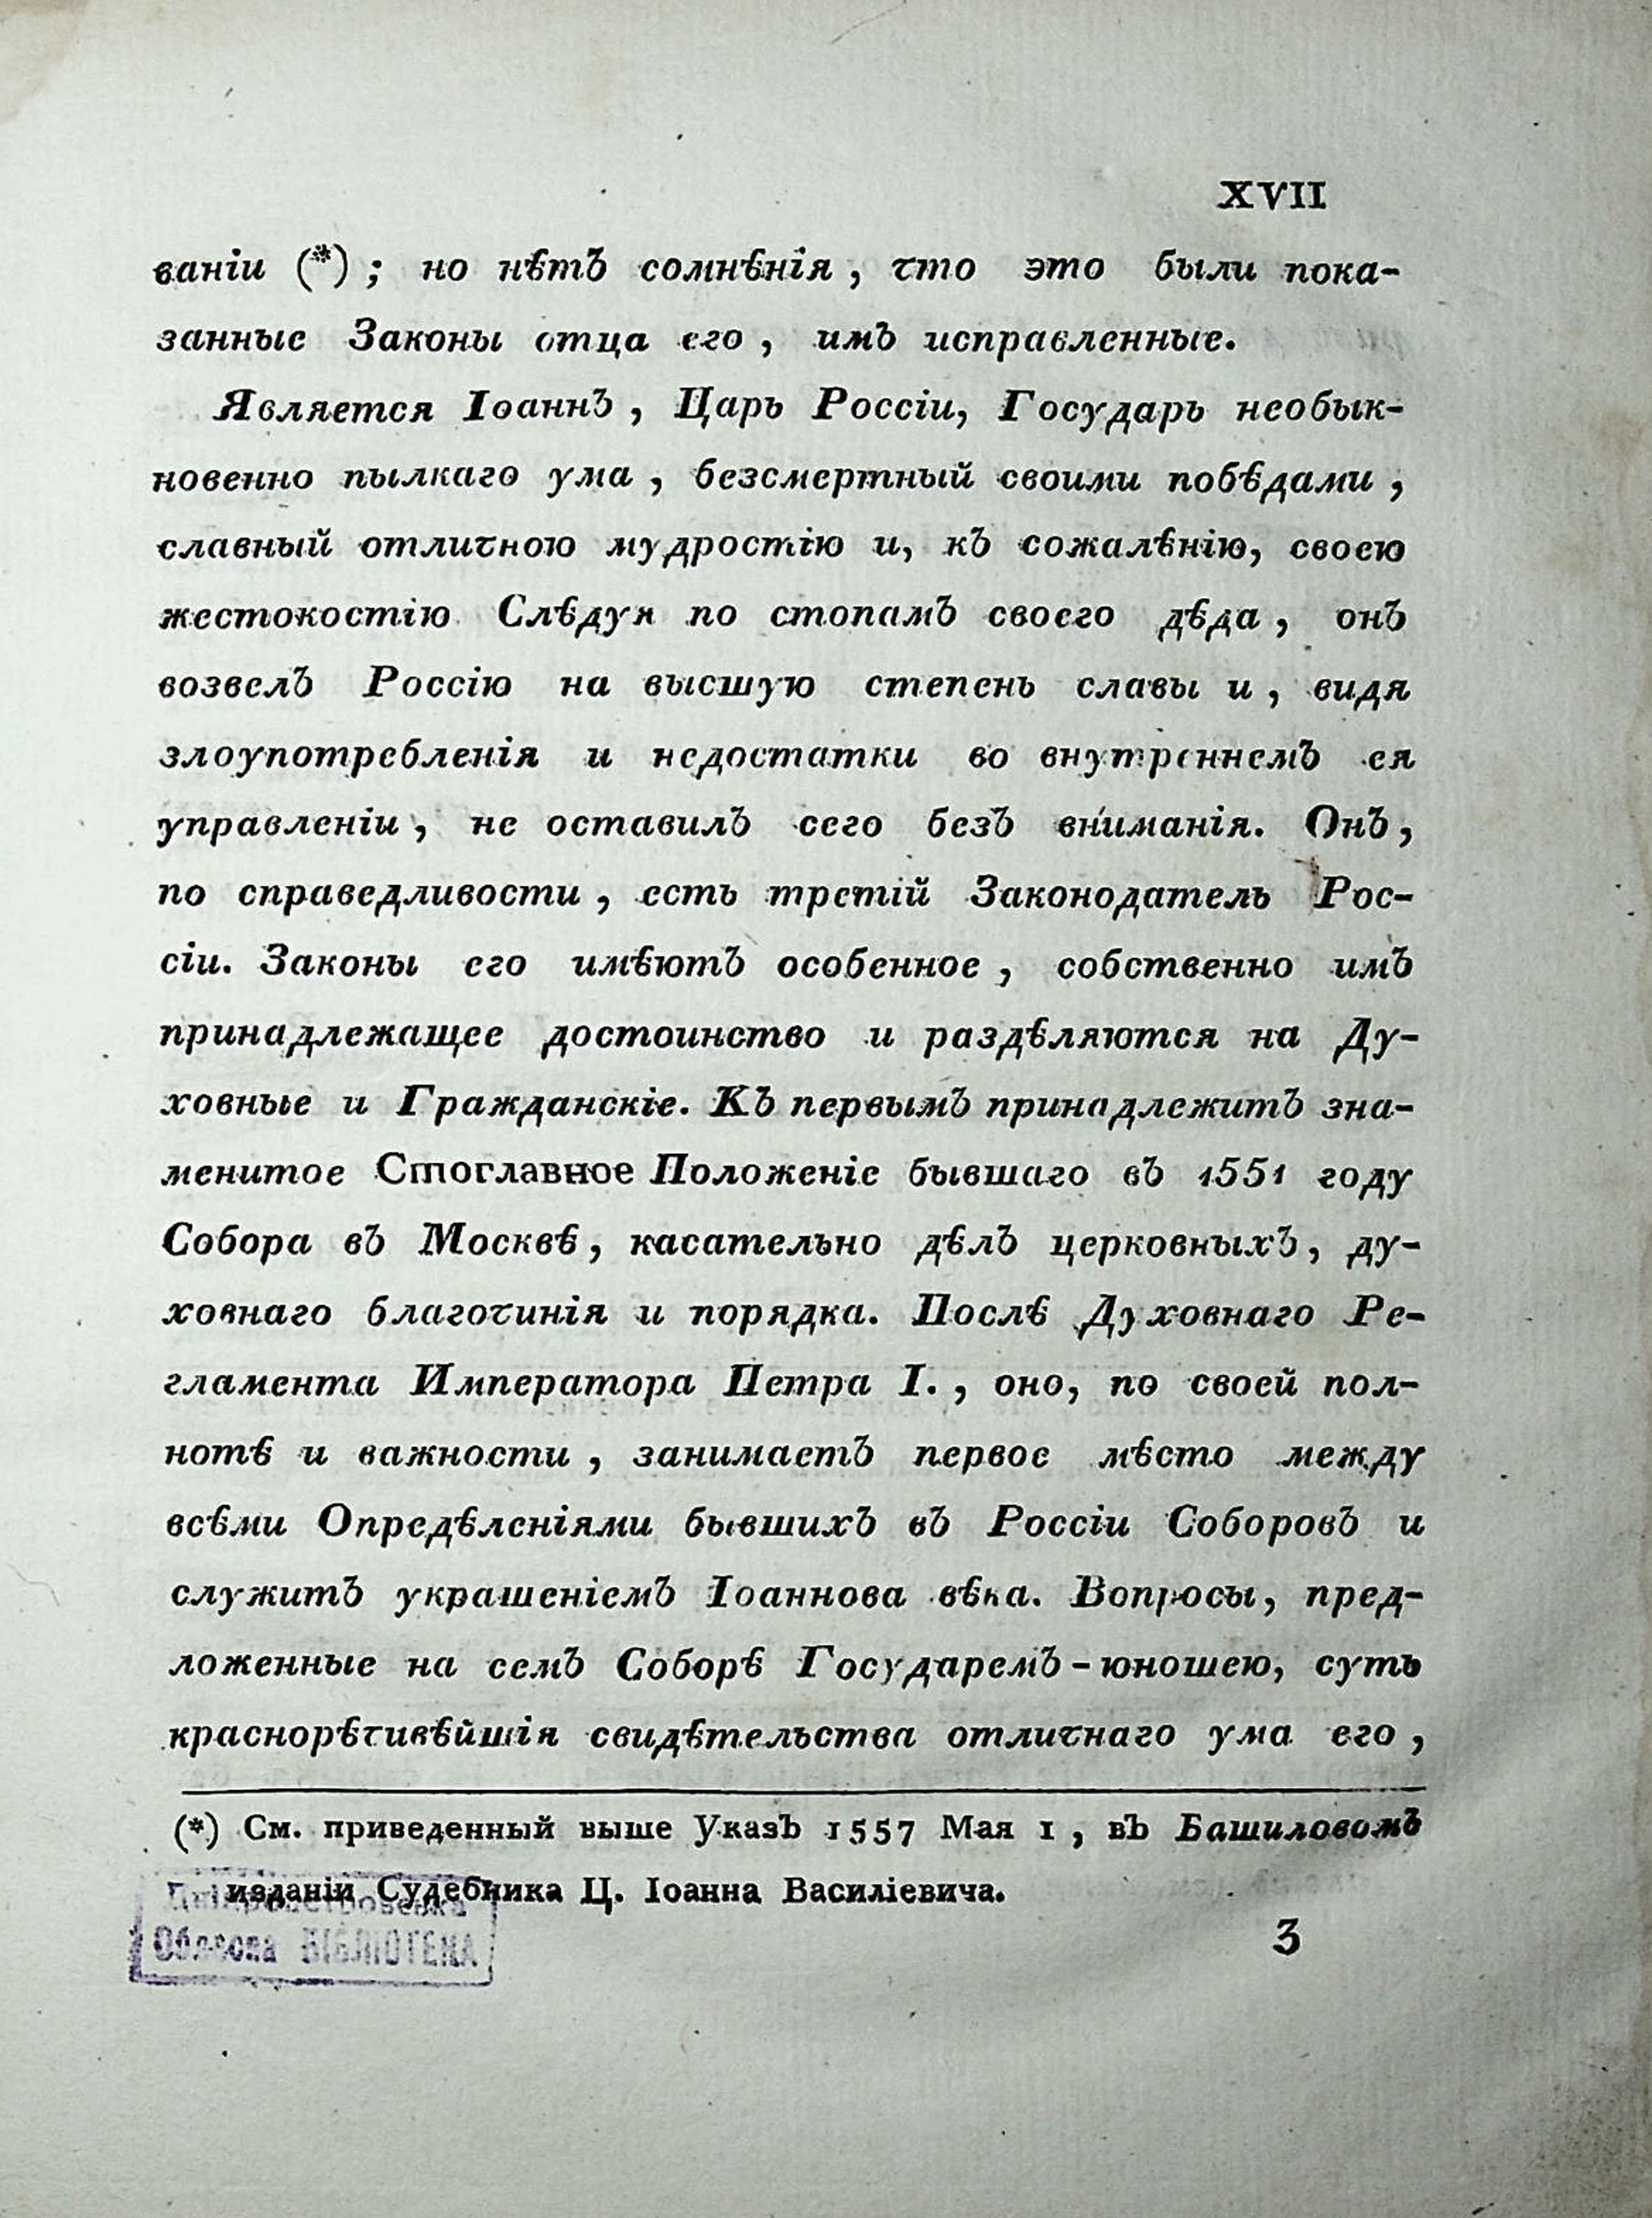 XVII
ваніи (*) ; но нѣтъ сомнѣнія , что это были пока-
занные Законы отца его , имъ исправленные.
Является Іоаннъ , Царь Россіи, Государь необык-
новенно пылкаго ума , безсмертный своими побѣдами ,
славный отличною мудростію и, къ сожалѣнію, своею
жестокостію Слѣдуя по стопамъ своего дѣда , онъ
возвелъ Россію на высшую степень славы и , видя
злоупотребленія и недостатки во внутреннемъ ея
управленіи , не оставилъ сего безъ вниманія. Онъ,
по справедливости , есть третій Законодатель Рос-
сіи. Законы его имѣютъ особенное , собственно имъ
принадлежащее достоинство и раздѣляются на Ду-
ховные и Гражданскіе. Къ первымъ принадлежитъ зна-
менитое Стоглавное Положеніе бывшаго въ 1551 году
Собора въ Москвѣ, касательно дѣлъ церковныхъ, ду-
ховнаго благочинія и порядка. Послѣ Духовнаго Ре-
гламента Императора Петра I. , оно, по своей пол-
нотѣ и важности , занимаетъ первое мѣсто между
всѣми Опредѣленіями бывшихъ въ Россіи Соборовъ и
служитъ украшеніемъ Іоаннова вѣка. Вопросы, пред-
ложенные на семъ Соборѣ Государемъ-юношею, суть
краснорѣчивѣйшія свидѣтельства отличнаго ума его ,
(*) См. приведенный выше Указъ 1557 Мая 1 , въ Башиловомъ
изданіи Судебника Ц. Іоанна Василіевича.
Обласна БІБЛІОТЕКА
3